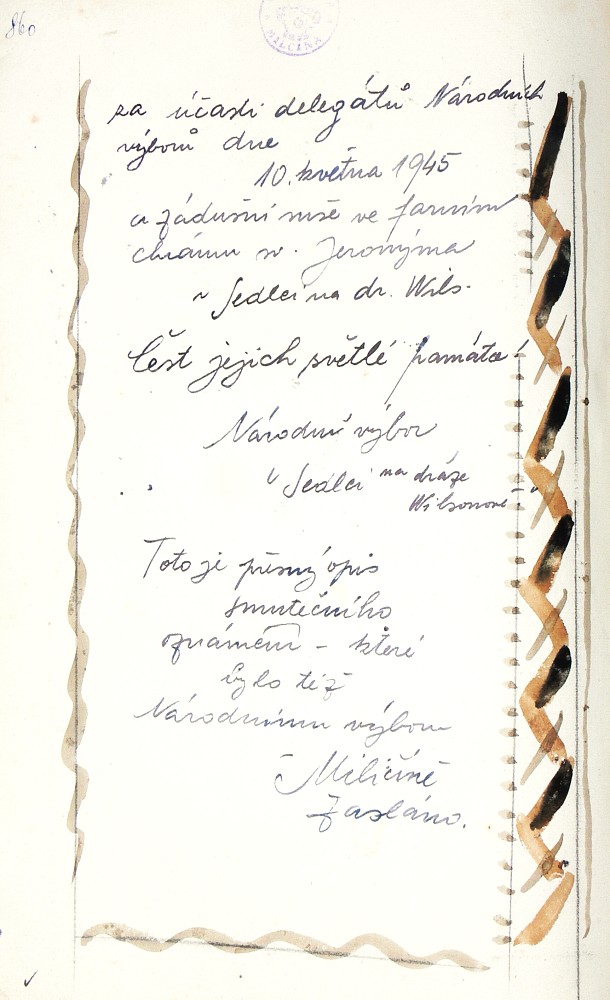 860
MILČÍNA
za účasti delegátů Národních
výborů dne
10. května 1945
a zádušní mše ve farním
chrámu sv. Jeronýma
v Sedlci na dr. Wils.
Čest jejich světlé památce!
Národní výbor
v Sedlci na dráze
Wilsonově."
Toto je přesný opis
smutečního
oznámení - které
bylo též
Národnímu výboru
v Miličíně
zasláno.